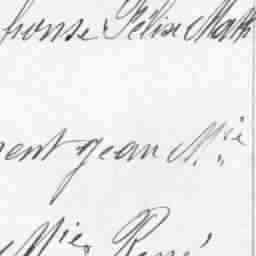 phonse Félix Math
ment jean M.ie
Mie René